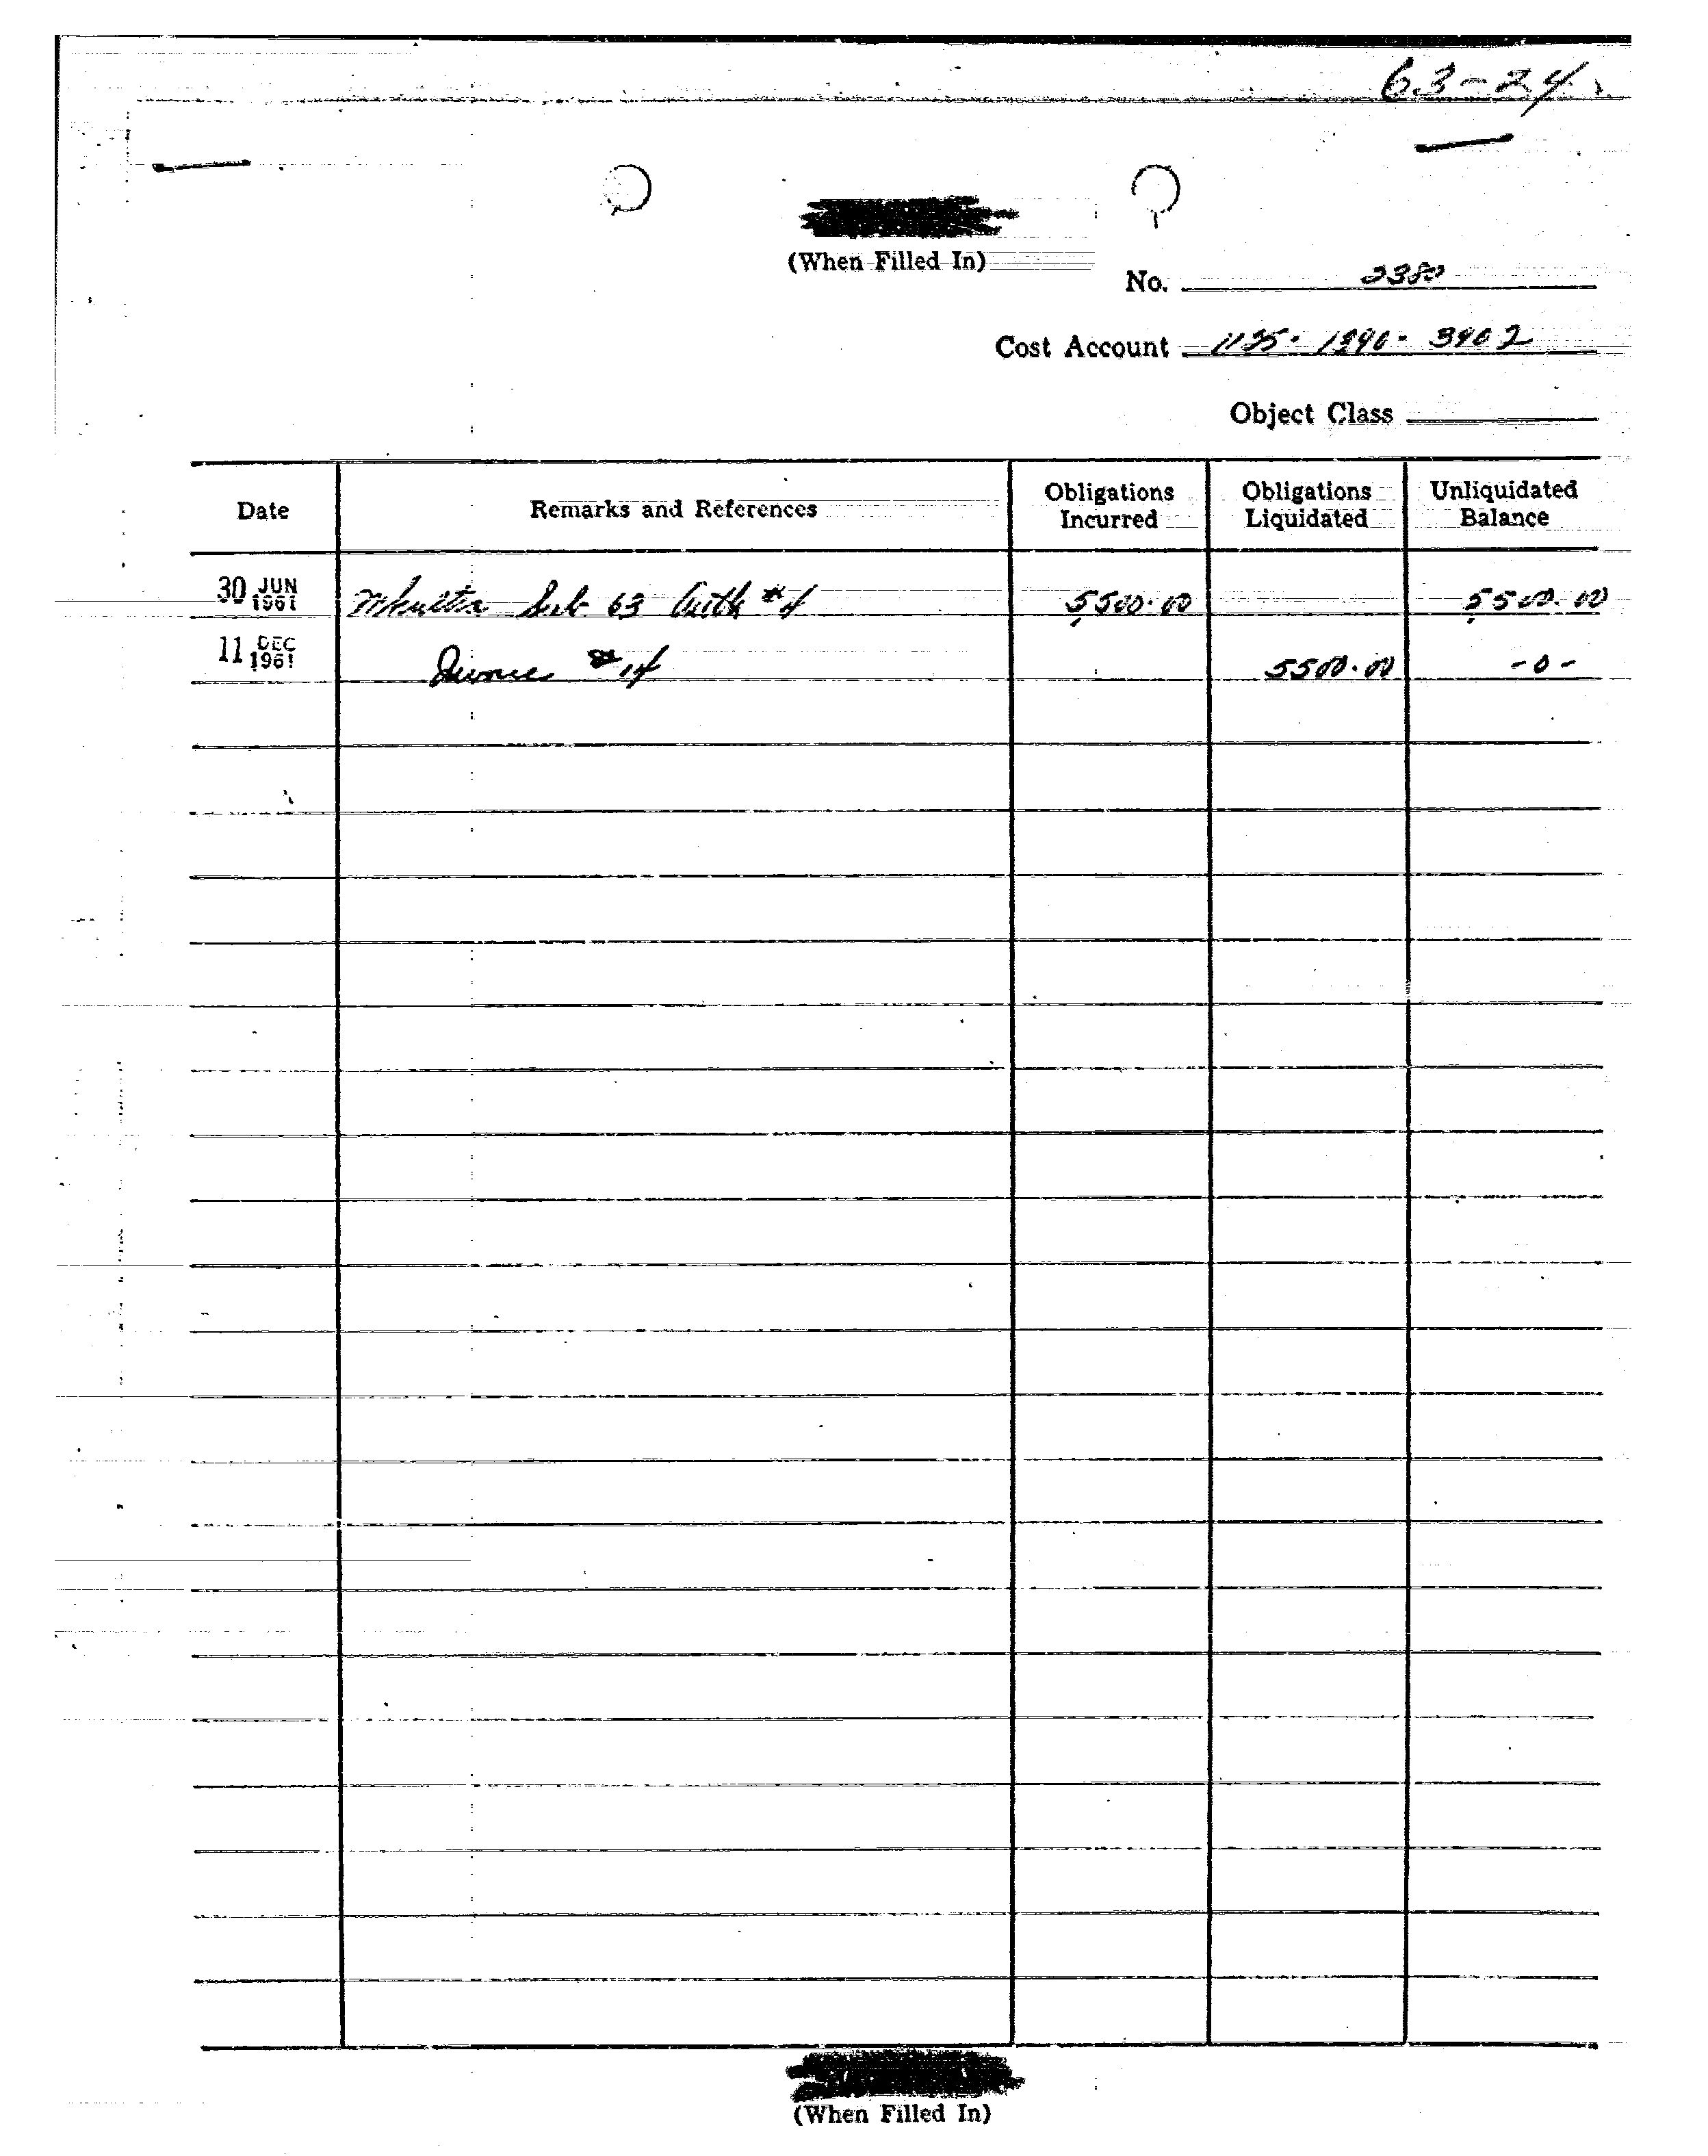 63-24
(When Filled In)
No. 2380
Cost Account 1125-1390-3902
Object Class
Date Remarks and References Obligations Incurred Obligations Liquidated Unliquidated Balance
30 JUN 1961 Mkultra Sub 63 Auth #4 5,500.00 5,500.00
11 DEC 1961 Invoice #14 5500.00 -0-
(When Filled In)